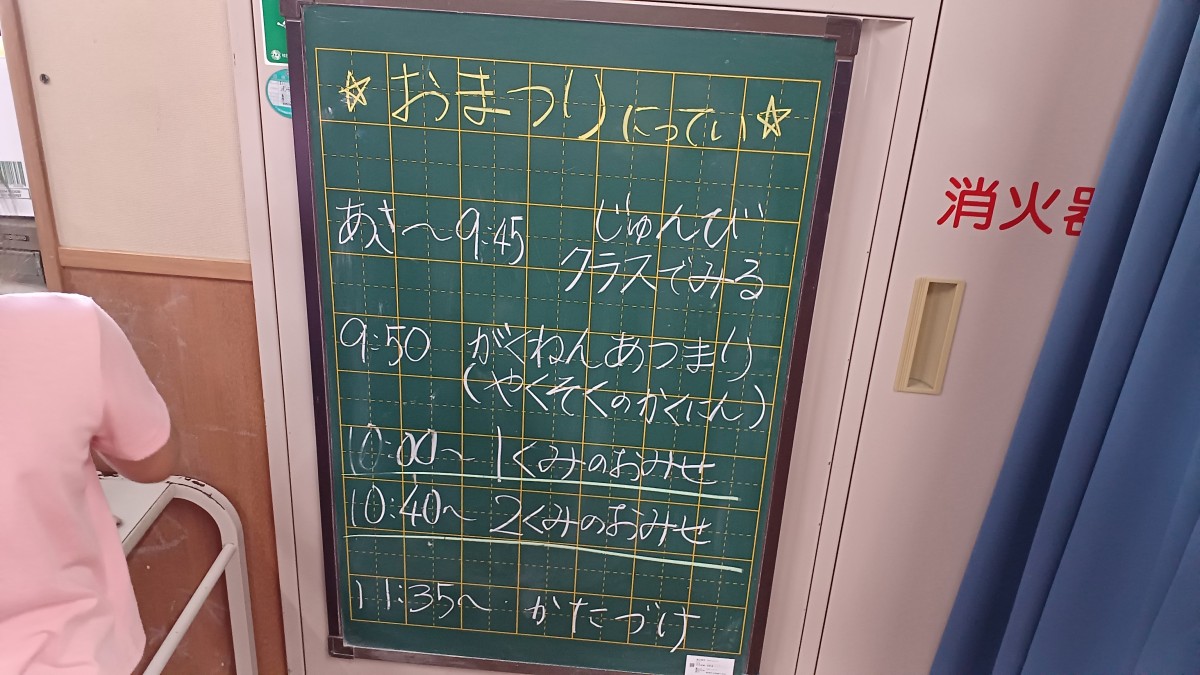 ☆おまつりにってい☆
あさ～9:45 じゅんび
クラスでみる
9:50 がくねんあつまり
(やくそくのかくにん)
10:00～ 1くみのおみせ
10:40～ 2くみのおみせ
11:35～ かたづけ
消火器